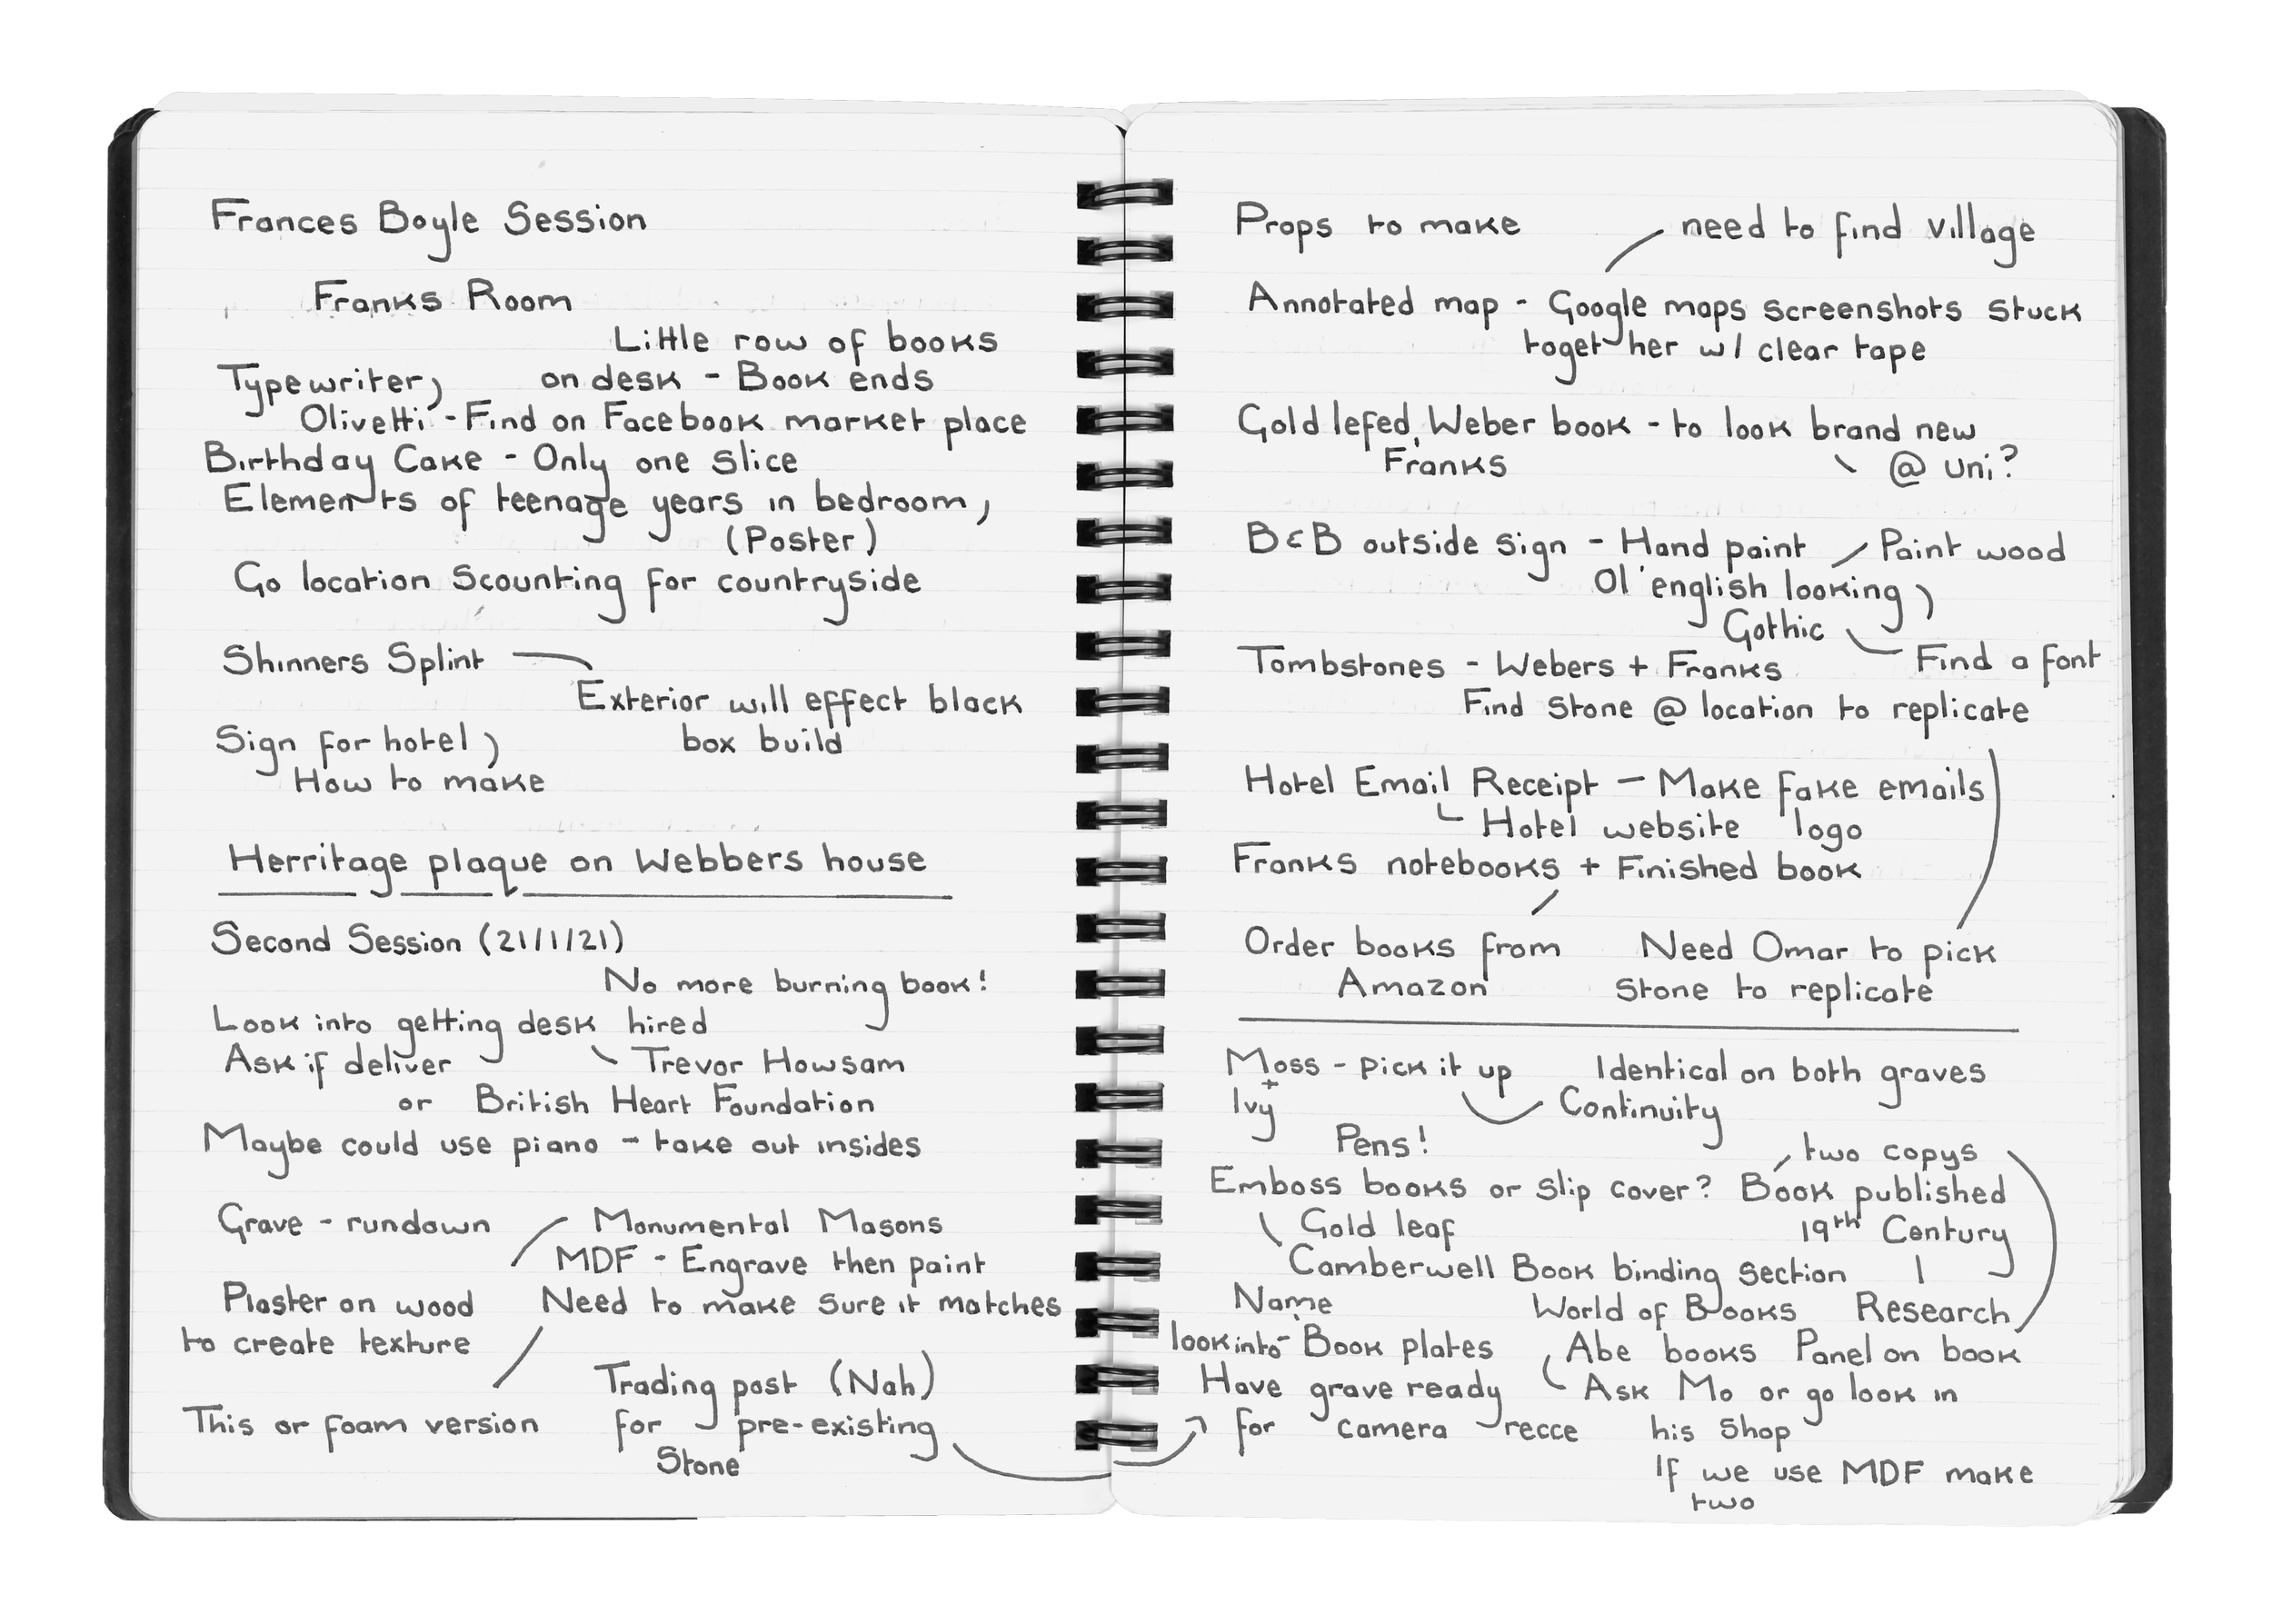 Frances Boyle Session
Franks Room
Little row of books
Typewriter, on desk - Book ends
Olivetti - Find on Facebook market place
Birthday Cake - Only one slice
Elements of teenage years in bedroom,
(Poster)
Go location Scounting for countryside
Shinners Splint
Exterior will effect black
Sign for hotel, box build
How to make
Herritage plaque on Webbers house
Second Session (21/1/21)
No more burning book!
Look into getting desk hired
Ask if deliver Trevor Howsam
or British Heart Foundation
Maybe could use piano - take out insides
Grave - rundown Monumental Masons
MDF - Engrave then paint
Plaster on wood Need to make sure it matches
to create texture
Trading post (Nah)
This or foam version for pre-existing
Stone
Props to make need to find village
Annotated map - Google maps screenshots stuck
together w/ clear tape
Gold lefed, Weber book - to look brand new
Franks @ uni?
B&B outside sign - Hand paint Paint wood
Ol' english looking,
Gothic
Tombstones - Webers + Franks Find a font
Find stone @ location to replicate
Hotel Email Receipt - Make fake emails
Hotel website logo
Franks notebooks + Finished book
Order books from Need Omar to pick
Amazon stone to replicate
Moss - pick it up Identical on both graves
+
Ivy Continuity
Pens! two copys
Emboss books or slip cover? Book published
Gold leaf 19th Century
Camberwell Book binding section
Name World of Books Research
look into - Book plates Abe books Panel on book
Have grave ready Ask Mo or go look in
for camera recce his shop
If we use MDF make
two